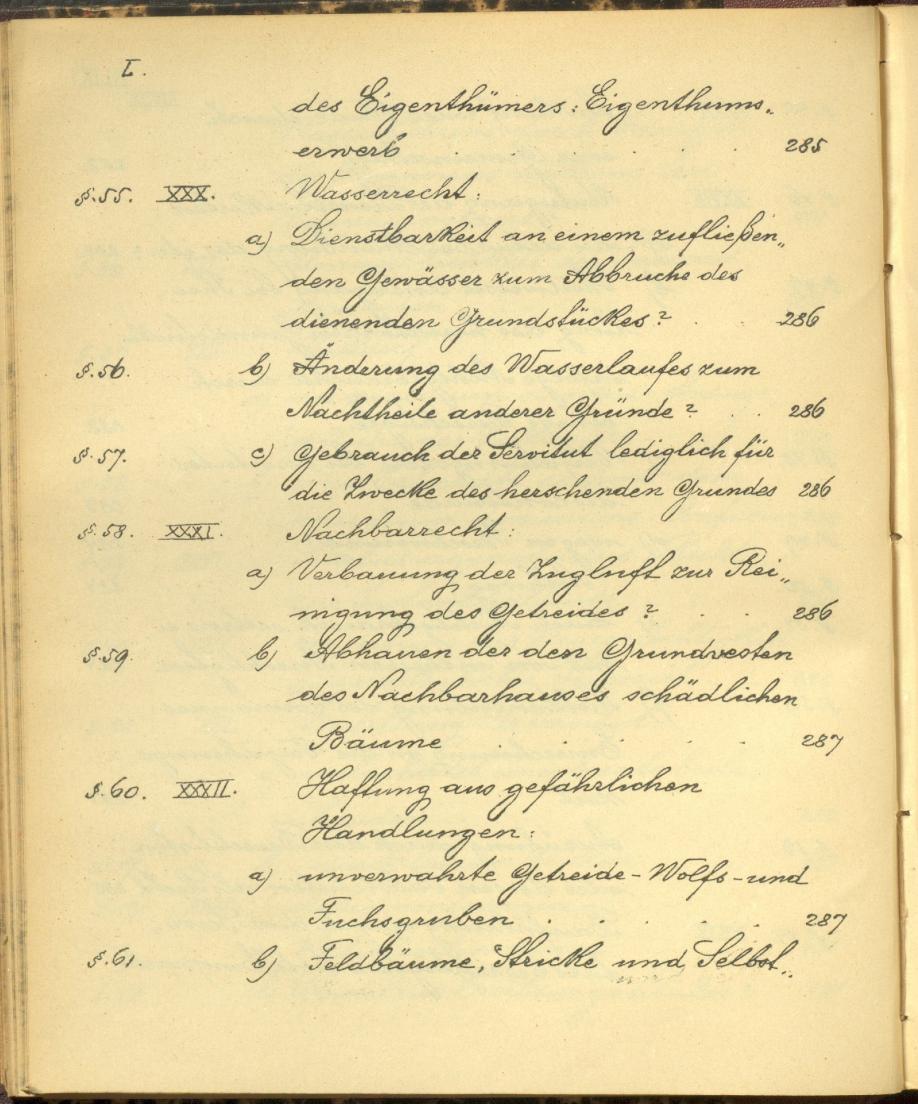 L.
des Eigenthümers: Eigenthums„
erwerb . . . . 285
§.55. XXX. Wasserrecht:
a) Dienstbarkeit an einem zufließen„
den Gewässer zum Abbruche des
dienenden Grundstückes? . . 286
§.56. b) Änderung des Wasserlaufes zum
Nachtheile anderer Gründe? . . 286
§.57. c) Gebrauch der Servitut lediglich für
die Zwecke des herschenden Grundes 286
§.58. XXXI. Nachbarrecht:
a) Verbauung der Zugluft zur Rei„
nigung des Getreides? . . 286
§.59. b) Abhauen der den Grundvesten
des Nachbarhauses schädlichen
Bäume . . . . 287
§.60. XXXII. Haftung aus gefährlichen
Handlungen:
a) unverwahrte Getreide-Wolfs-und
Fuchsgruben . . . . 287
§.61. b) Feldbäume, Stricke und Selbst„